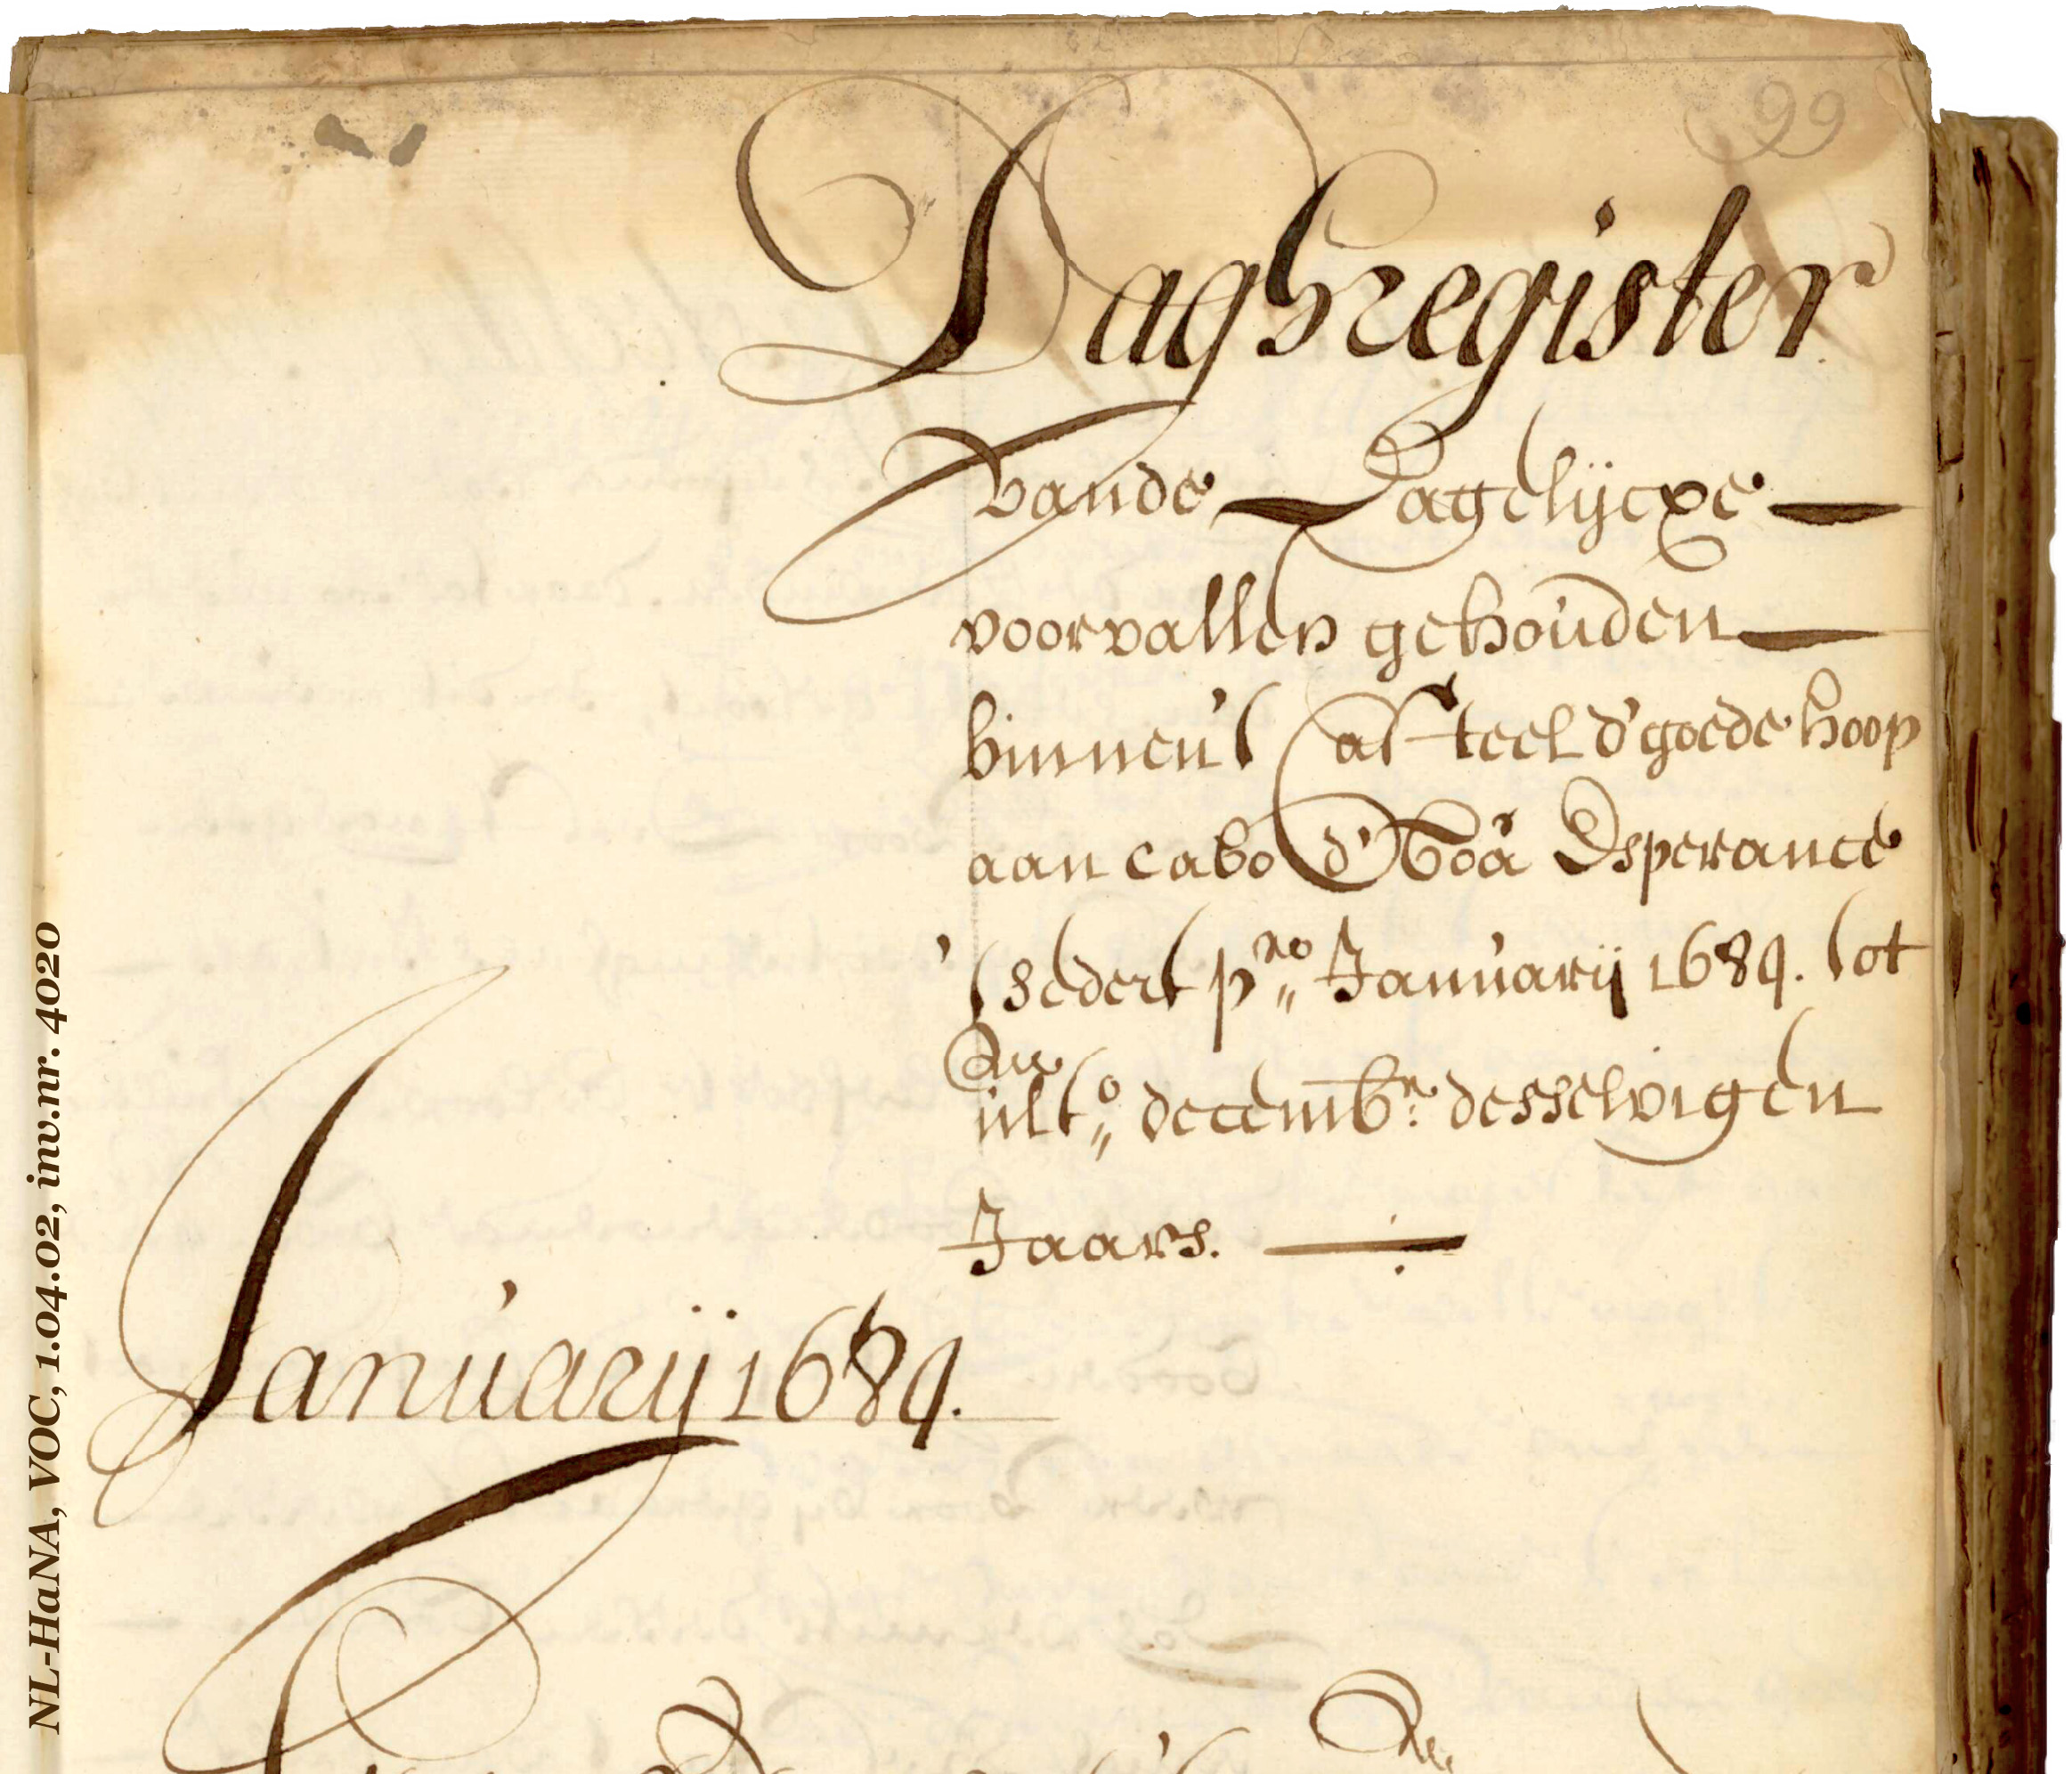 99
Daghregister
vande Dagelijcxe
voorvallen gehouden
binnen't Casteel d'goede hoop
aan cabo d'Boã Esperance
'tsedert p„mo Januarij 1684. tot
Den
ult„o decemb:r desselvigen
Jaars.
Januarij 1684.
NL-HaNA, VOC, 1.04.02, inv.nr. 4020